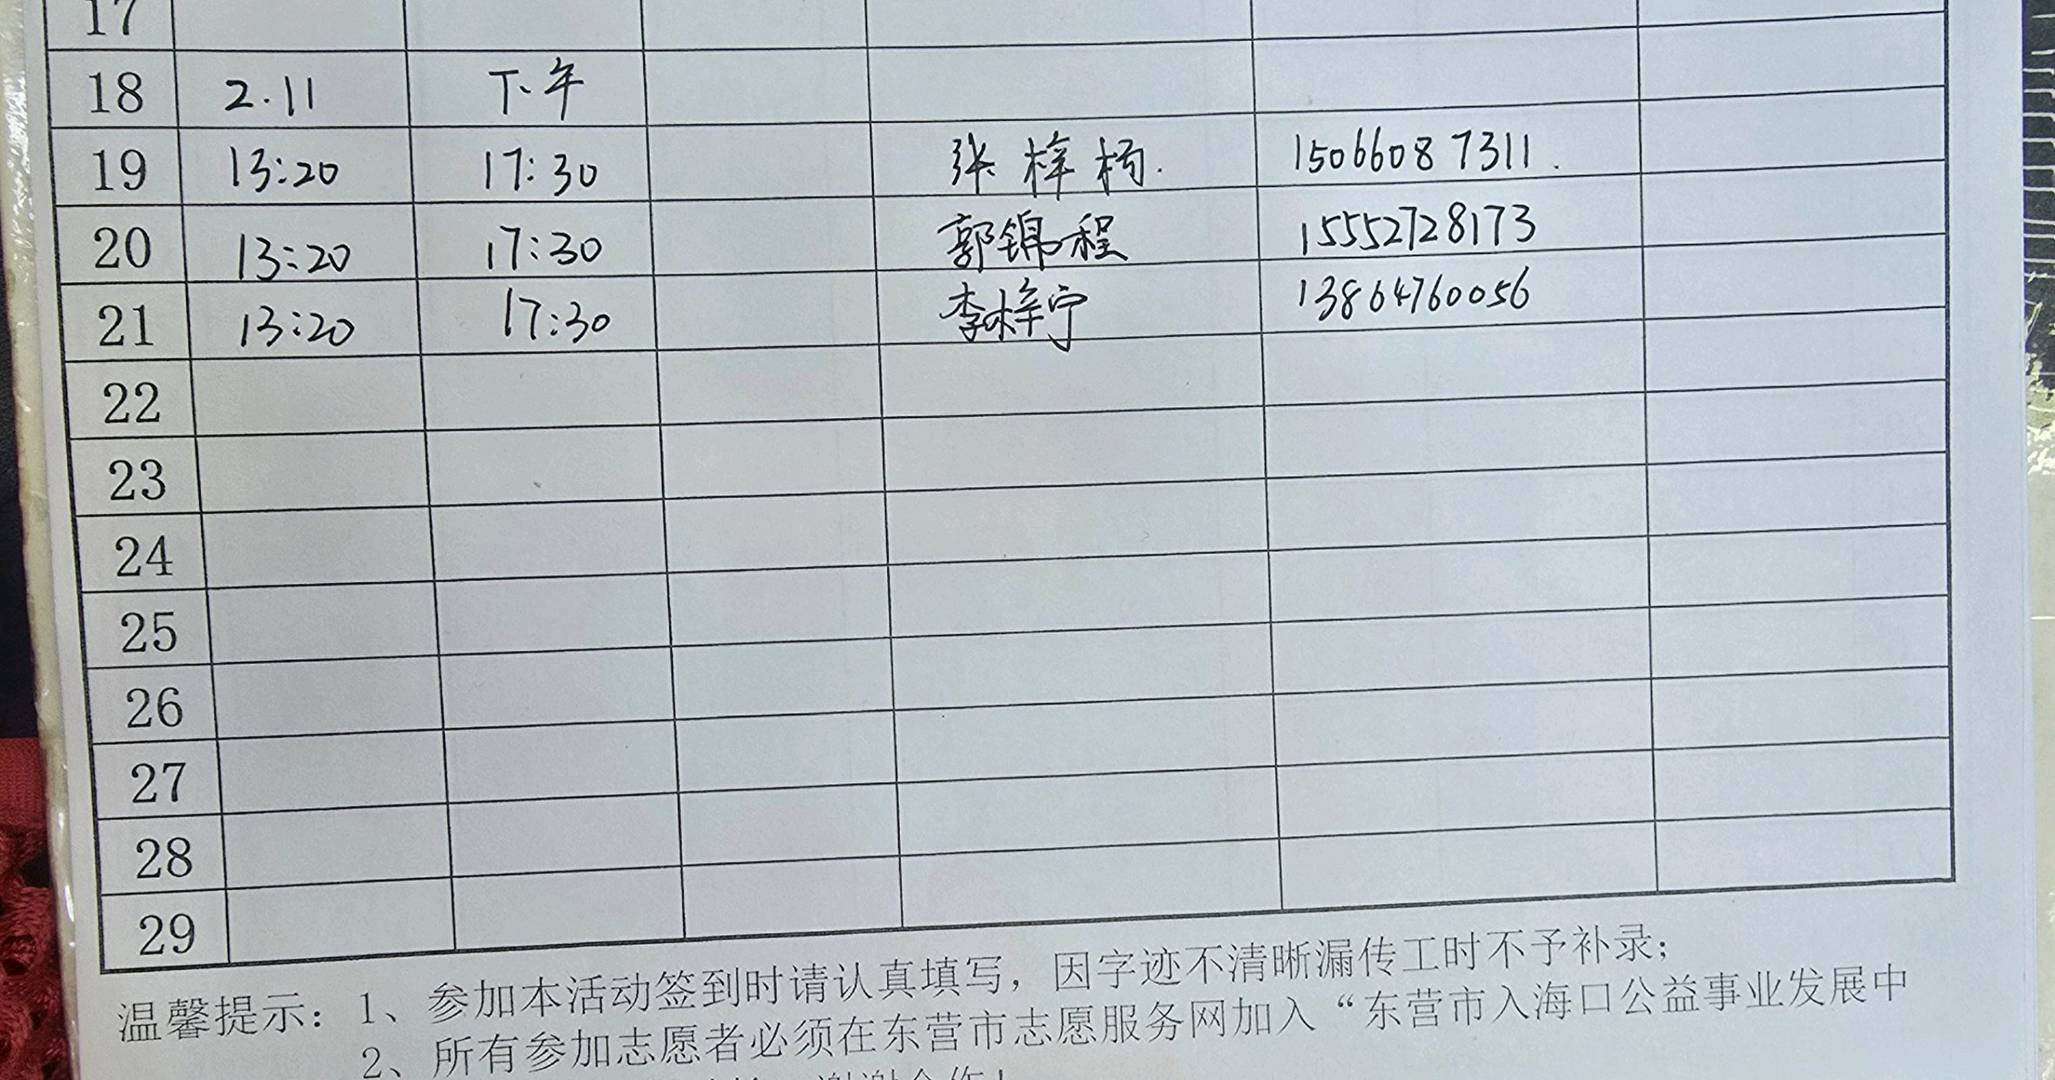 17
18 2.11 下午
19 13:20 17:30 张梓杨. 15066087311.
20 13:20 17:30 郭锦程 15552728173
21 13:20 17:30 李梓宁 13864760056
22
23
24
25
26
27
28
29
温馨提示：1、参加本活动签到时请认真填写，因字迹不清晰漏传工时不予补录；
2、所有参加志愿者必须在东营市志愿服务网加入“东营市入海口公益事业发展中